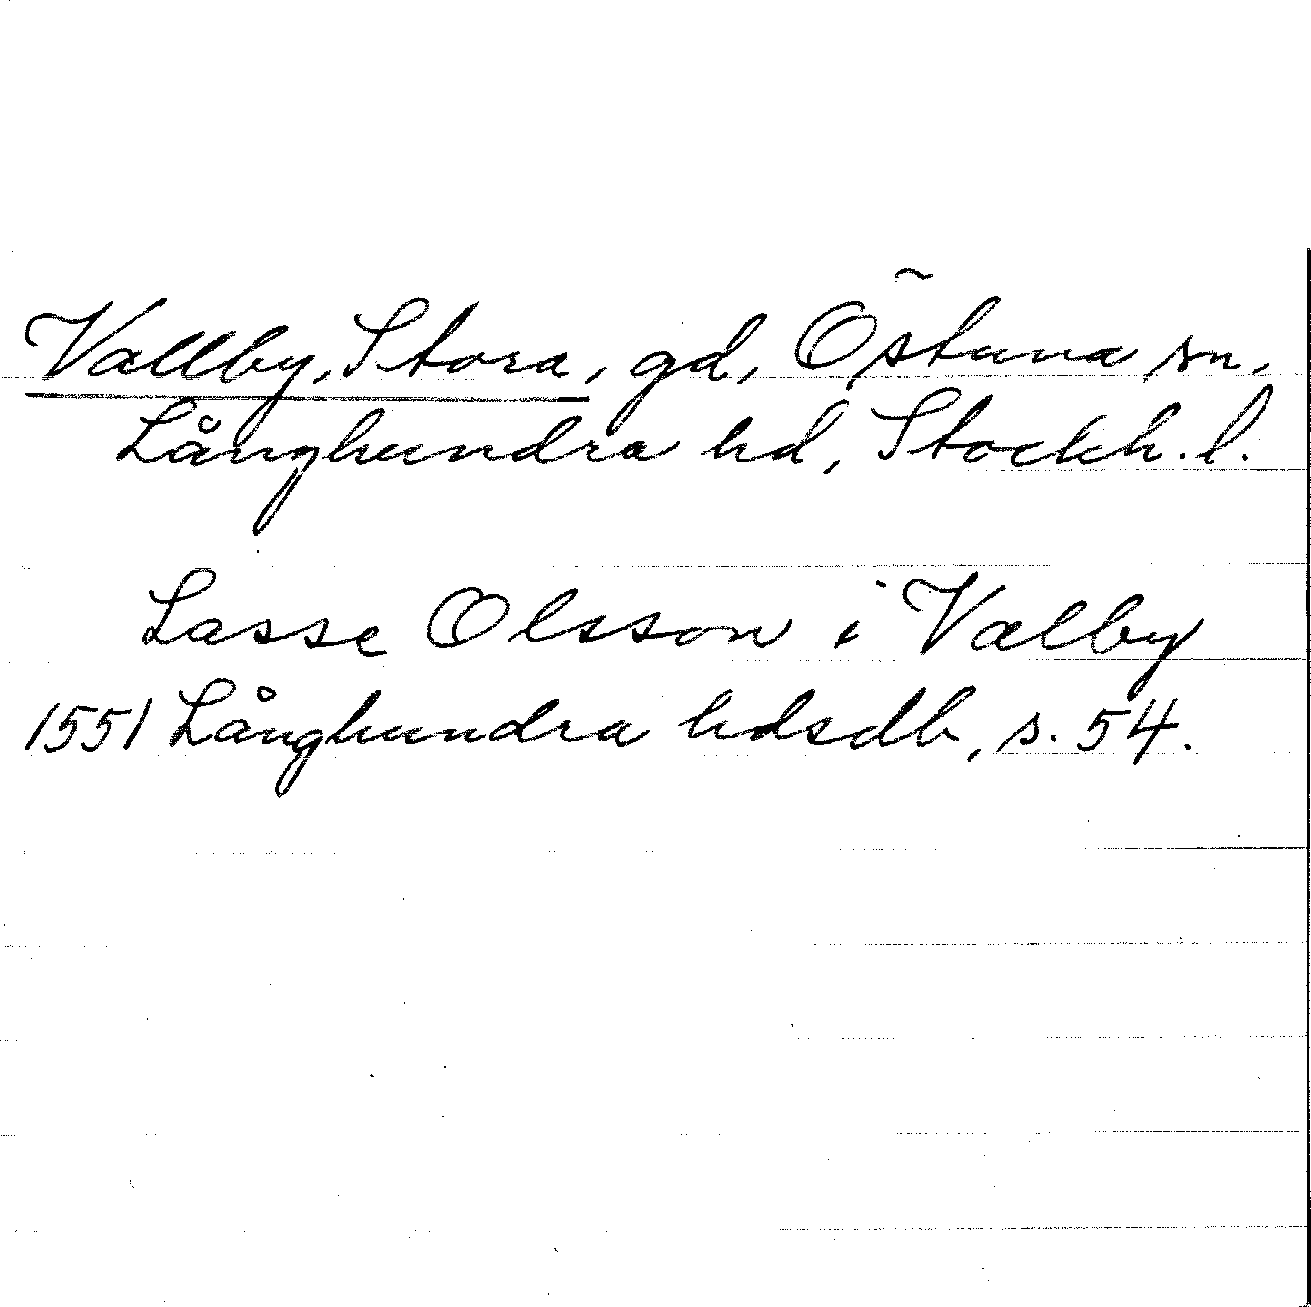 Vallby, Stora, gd, Östuna sn,
Långhundra hd, Stockh. l.
Lasse Olsson i Valby
1551 Långhundra hdsdb, s. 54.